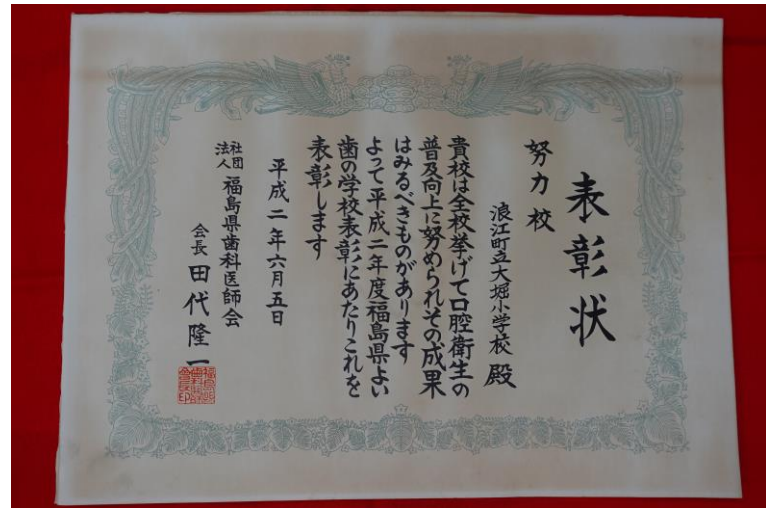 表彰状
努力校
浪江町立大堀小学校 殿
貴校は全校挙げて口腔衛生の
普及向上に努められその成果
はみるべきものがあります
よって平成二年度福島県よい
歯の学校表彰にあたりこれを
表彰します
平成二年六月五日
社団法人 福島県歯科医師会
会長 田代隆一